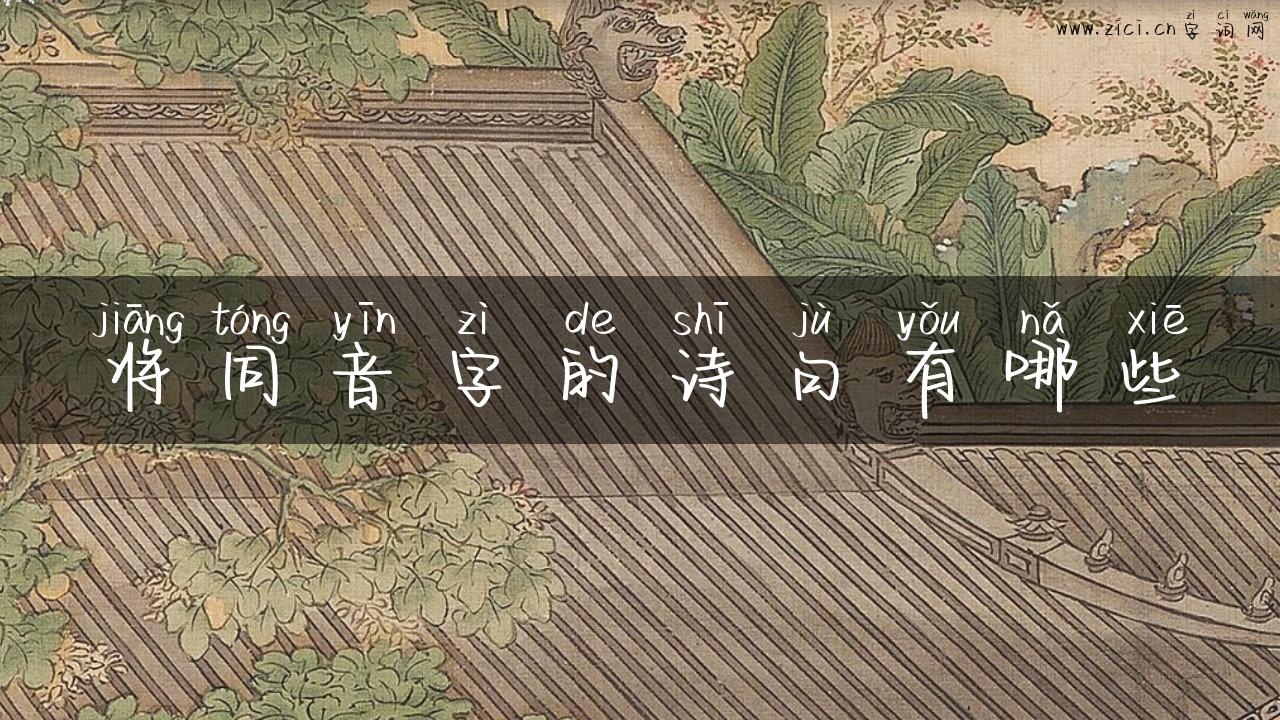 zì cí wǎng
www.zici.cn 字词网
jiāng tóng yīn zì de shī jù yǒu nǎ xiē
将同音字的诗句有哪些